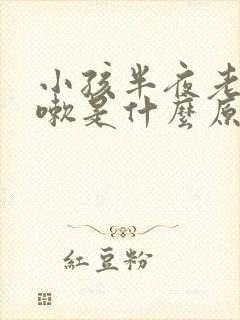 小孩半夜老
嗽是什麼原
紅豆粉